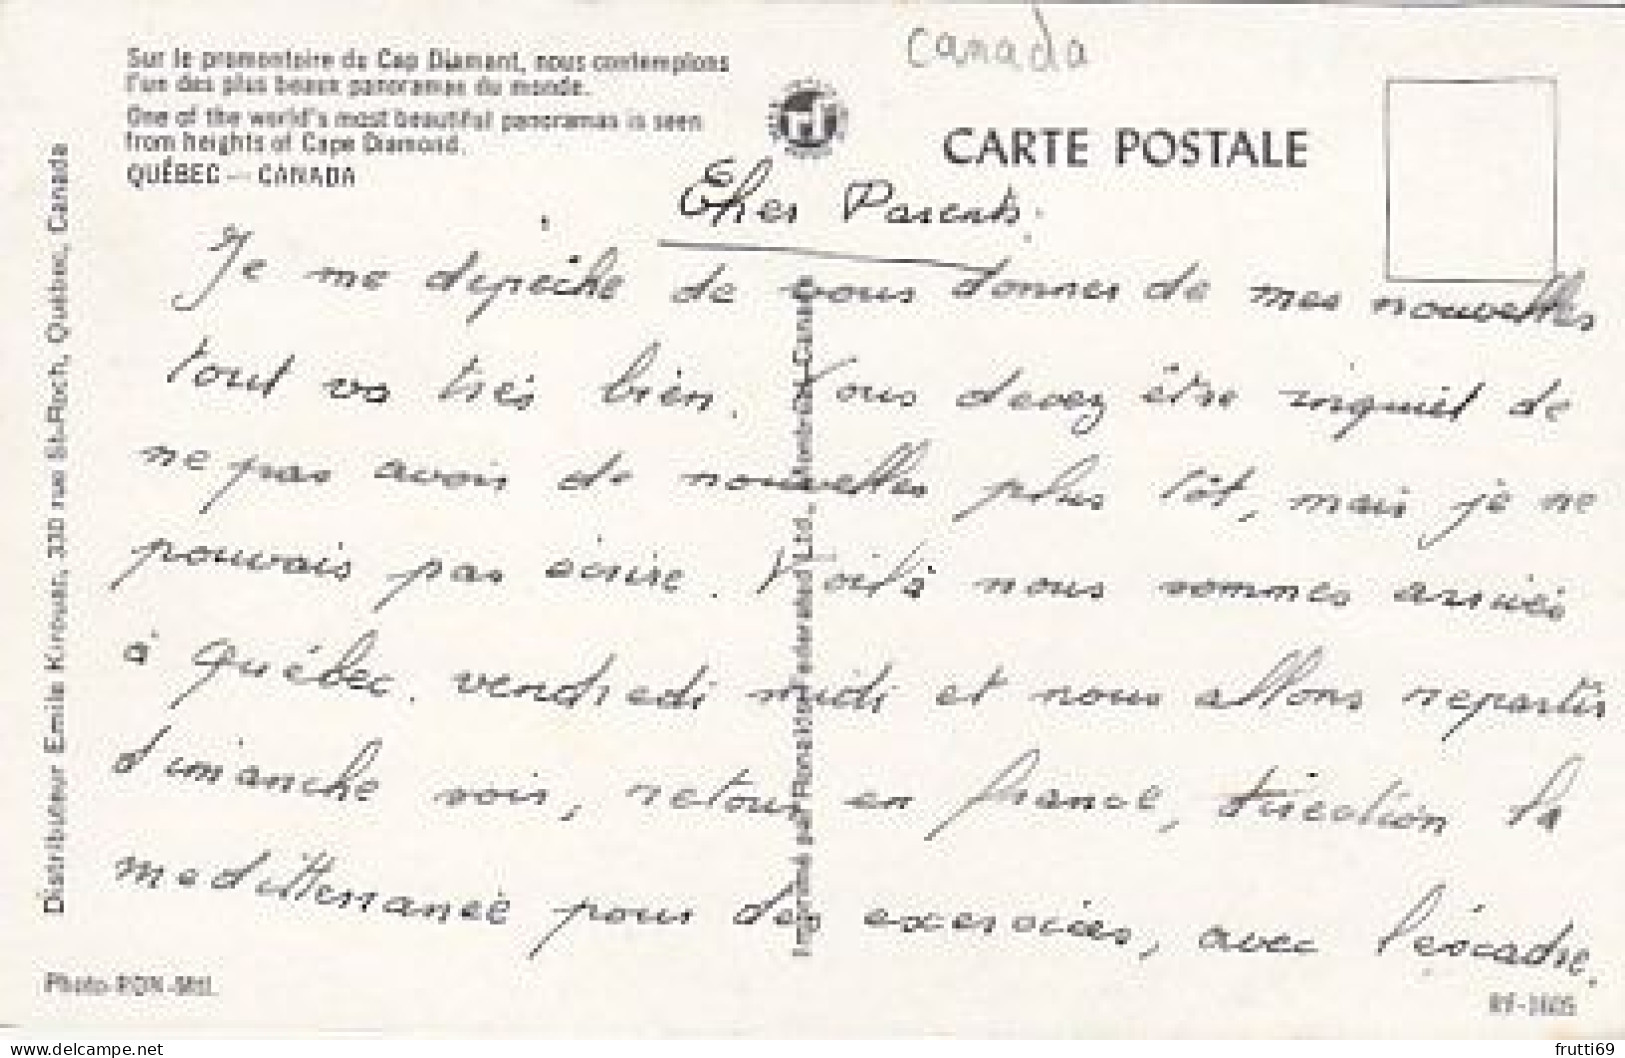 canada
Sur le promontoire du Cap Diamant, nous contemplons
l'un des plus beaux panoramas du monde.
One of the world's most beautiful panoramas is seen
from heights of Cape Diamond.
QUÉBEC — CANADA
CARTE POSTALE
Cher Parents.
Je me dépèche de vous donner de mes nouvelles
tout va très bien. Vous devez être inquiet de
ne pas avoir de nouvelles plus tôt, mais je ne
pouvais pas écrire. Voilà nous sommes arrivés
à Québec. vendredi midi et nous allons repartir
dimanche soir, retour en france, direction la
mediterranée pour des exercices, avec l'éscadre.
Distributeur Emile Kirouac, 330 rue St-Roch, Québec, Canada
Imprimé par Ronalds-Federated Ltd., Montréal, Canada
Photo PDN-Mtl.
RF-1605
©picclick.com
frutti69